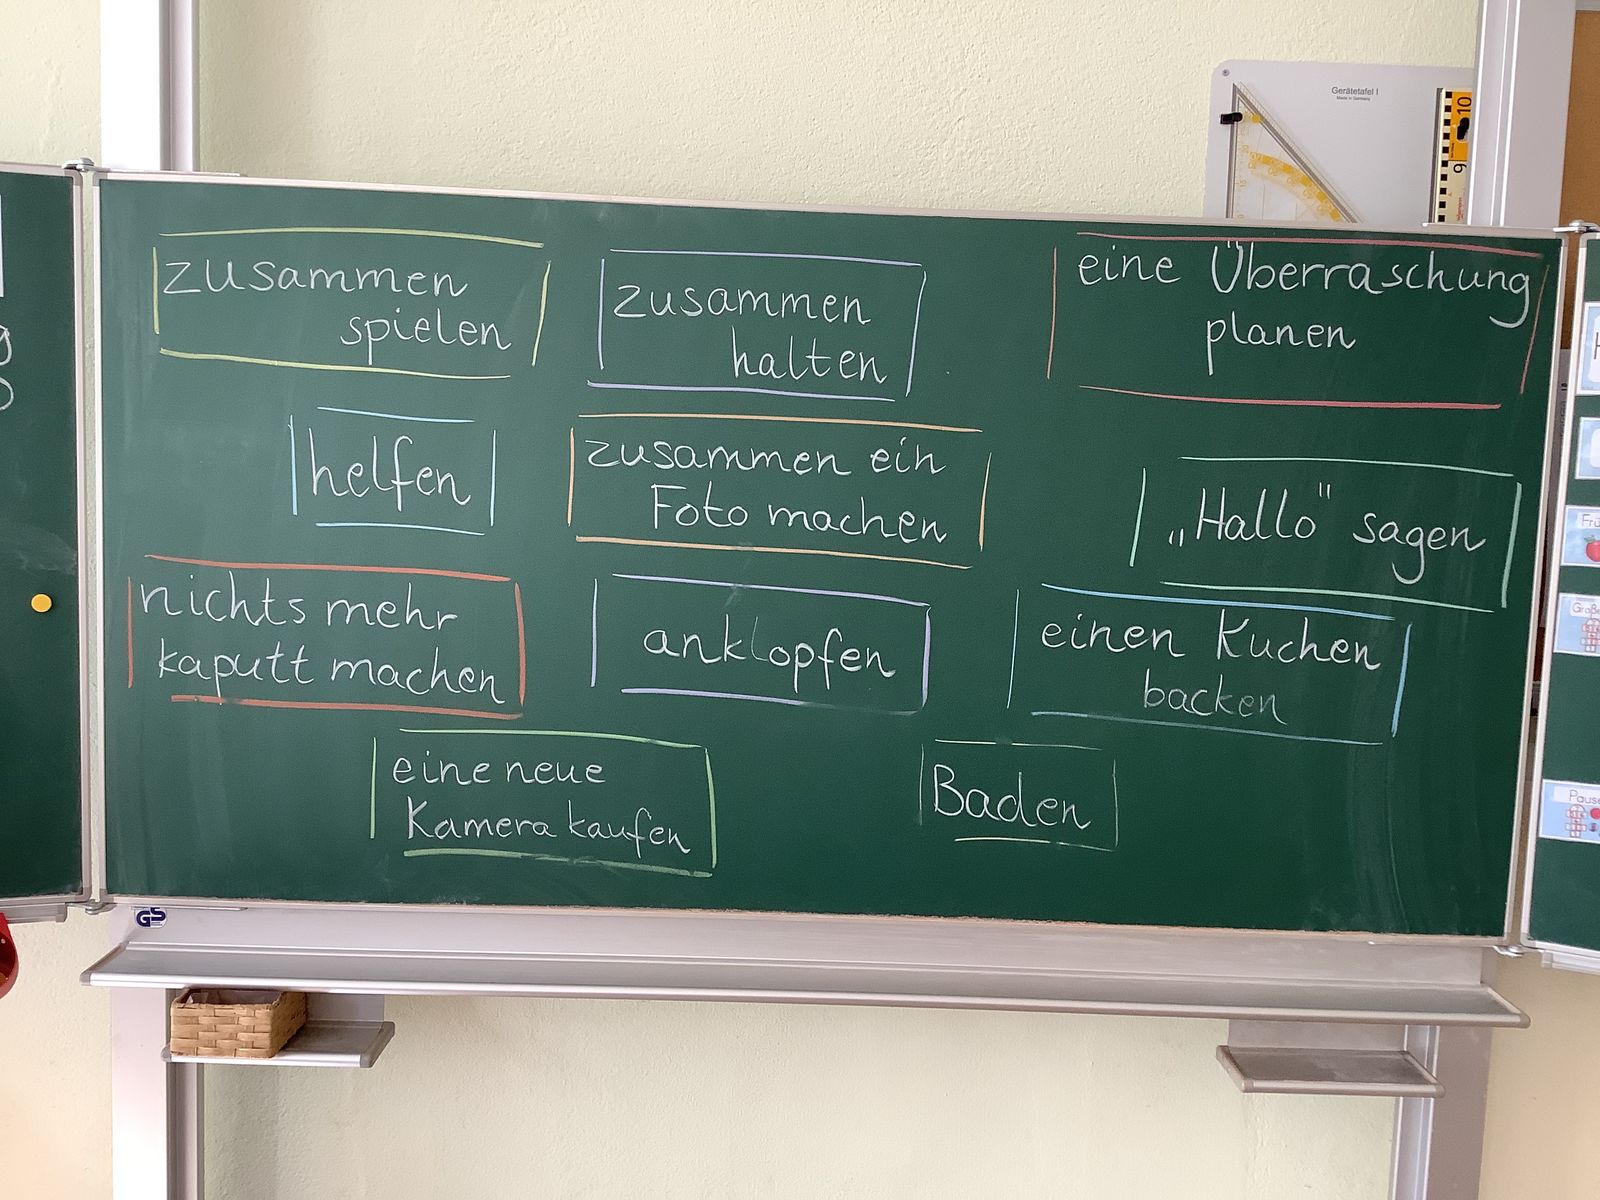 zusammen
spielen
zusammen
halten
eine Überraschung
planen
helfen
zusammen ein
Foto machen
„Hallo“ sagen
nichts mehr
kaputt machen
anklopfen
einen Kuchen
backen
eine neue
Kamera kaufen
Baden
Gerätetafel I
Made in Germany
10
9
GS
Pause